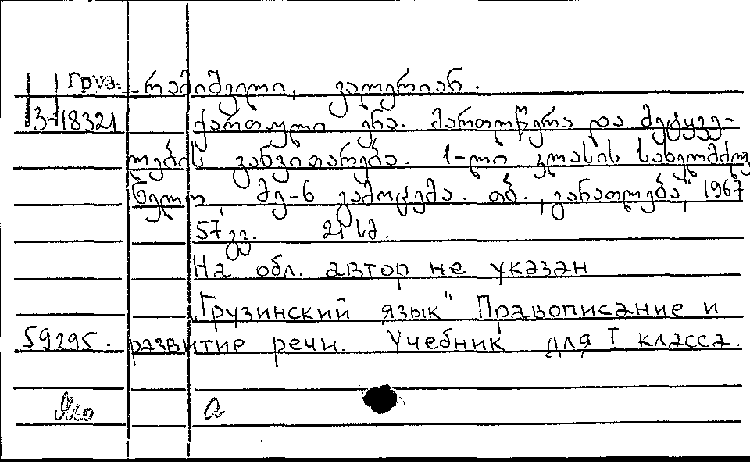 Груз. რამიშვილი, ვალერიან.
3-18321 ქართული ენა. მართლწერა და მეტყვე-
ლების განვითარება. 1-ლი კლასის სახელმძღვ
მე-6 გამოცემა. თბ. „განათლება“, 1967
57 გვ. 21 სმ.
На обл. автор не указан
„Грузинский язык" Правописание и
59295. развитие речи. Учебник для I класса.
а